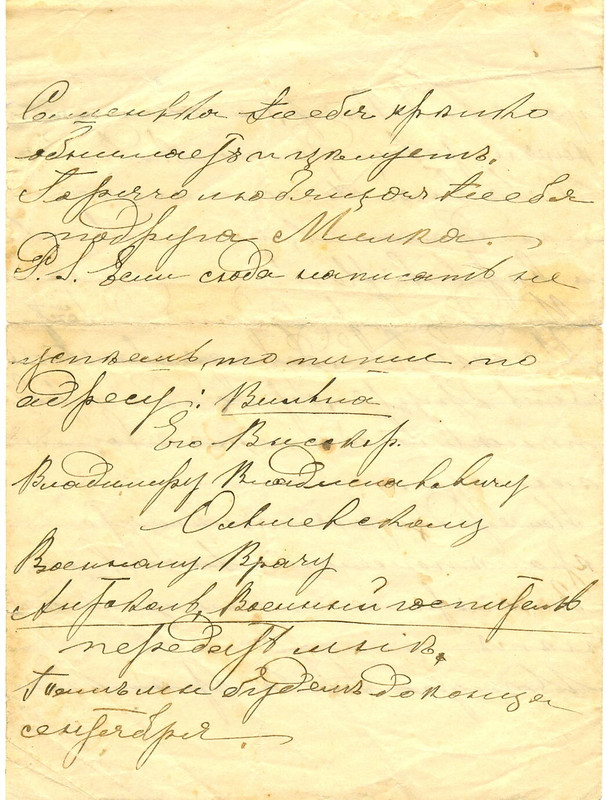 Сашенька тебя крѣпко
обнимаетъ и цѣлуетъ.
Горячо любящая тебя
подруга Милка.
P.S. Если сюда написать не
успѣешь, то пиши по
адресу: Вильна
Его Высокор.
Владимиру Владиславовичу
Ольшевскому
Военному Врачу
Антоколь, Военный госпиталь
передать мнѣ.
Тамъ мы будемъ до конца
сентября